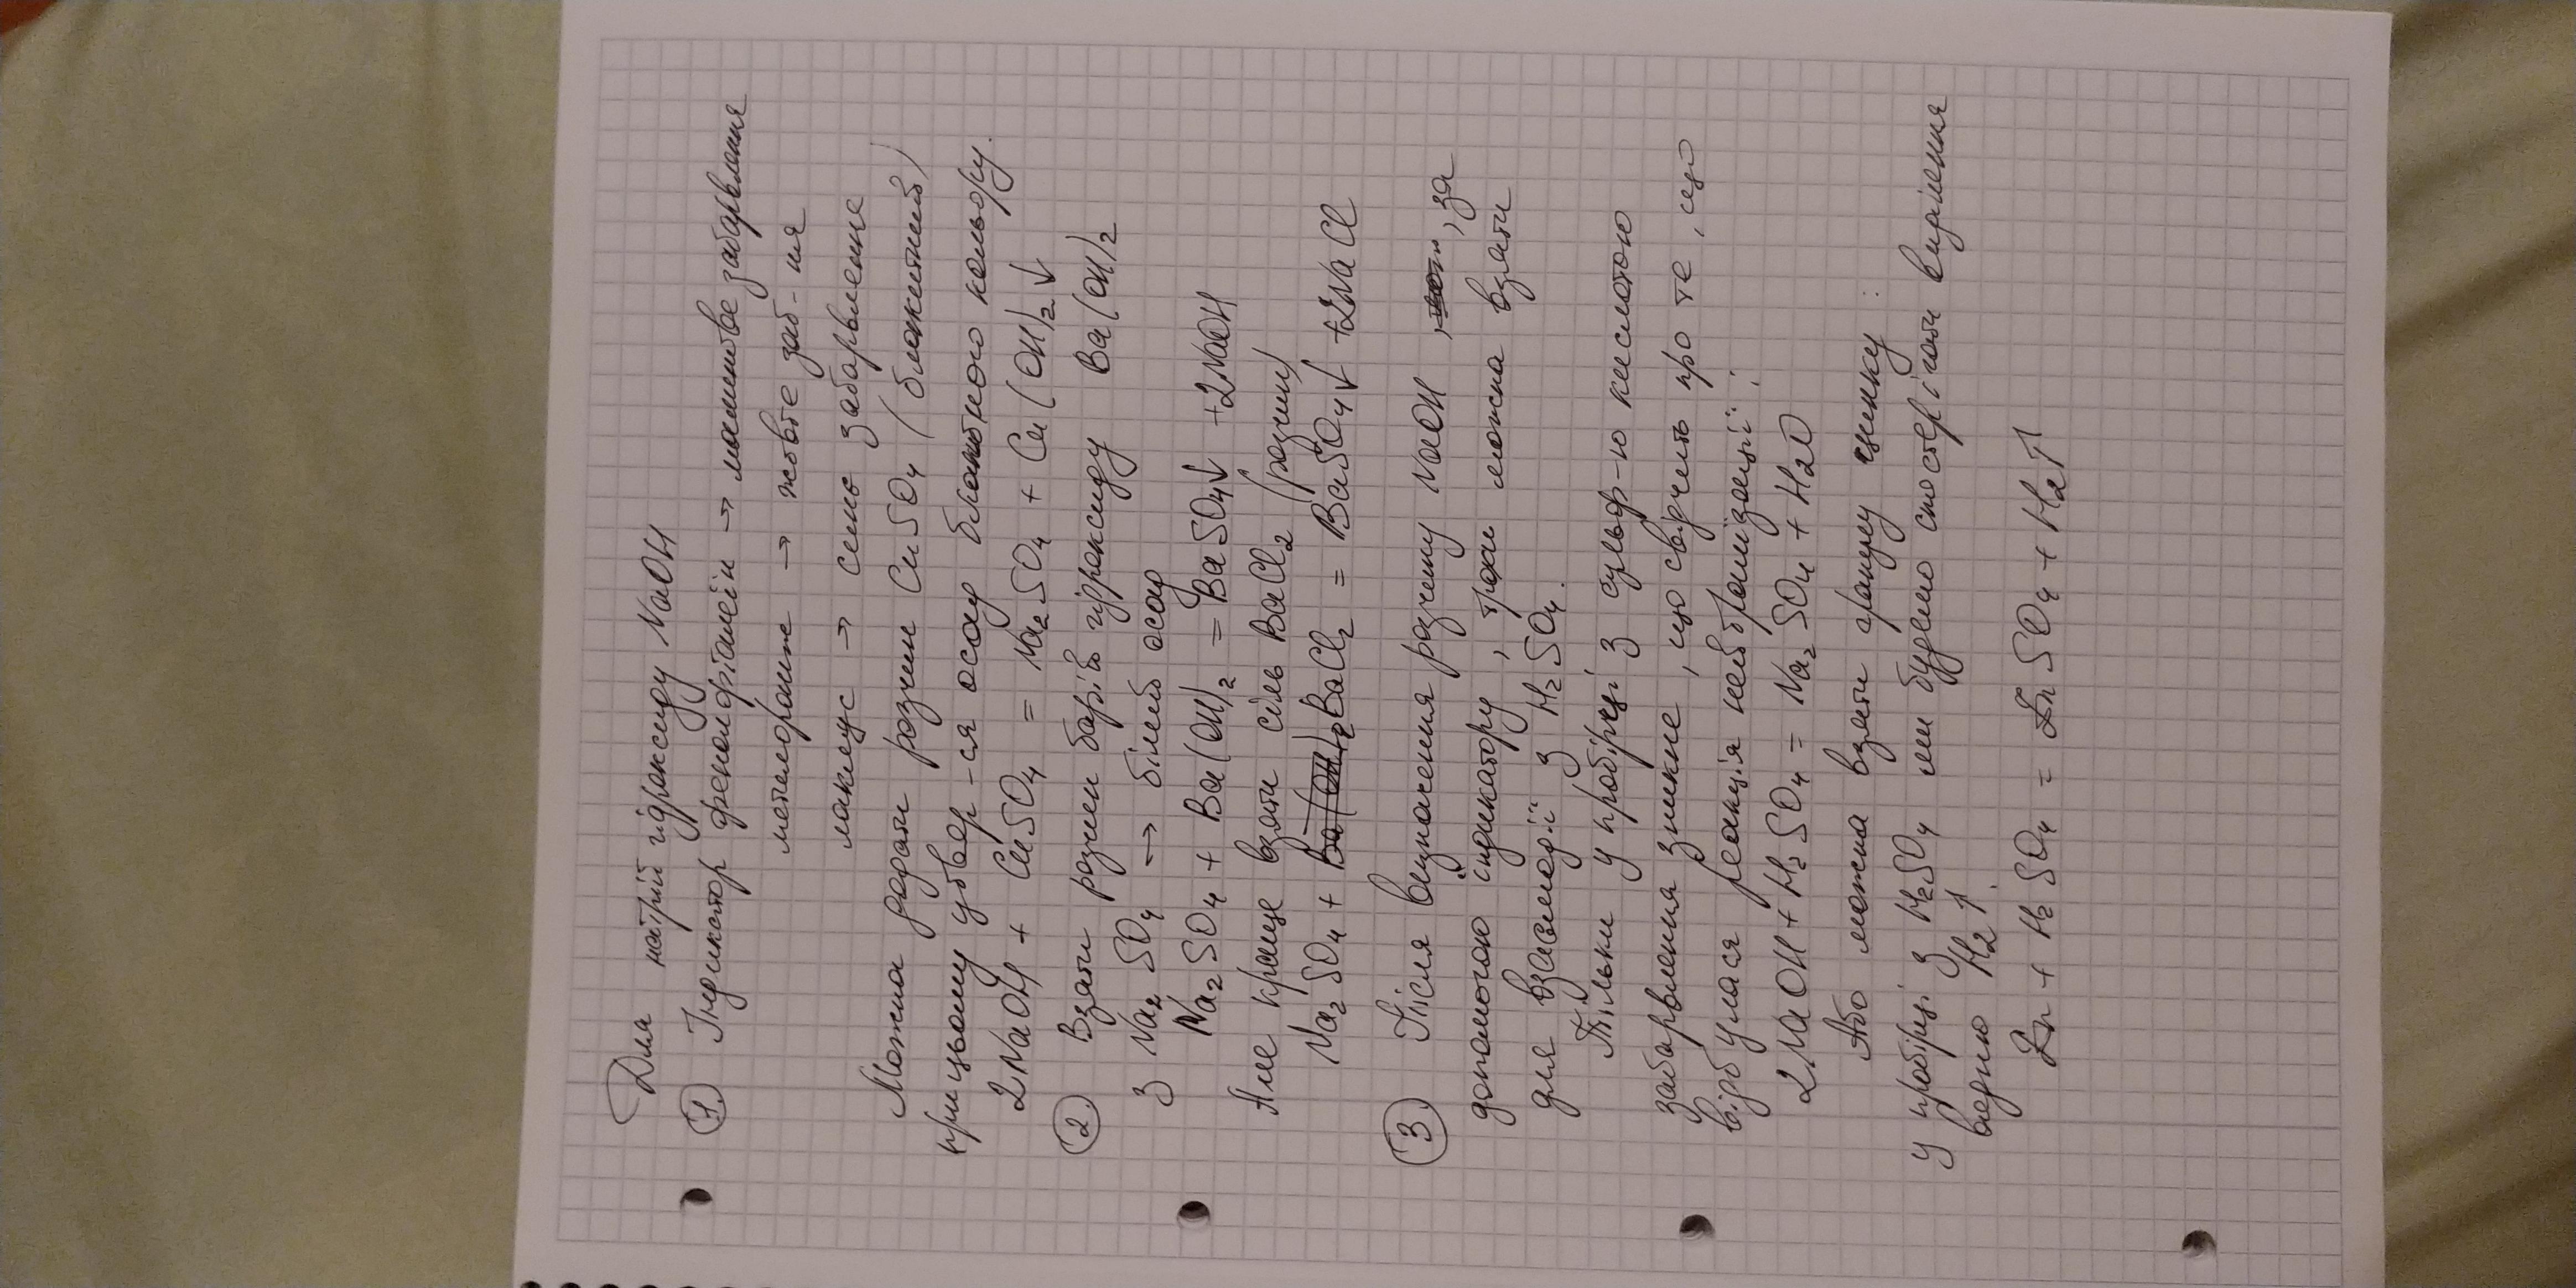 Для натрій гідроксиду NaOH
1. Індикатор фенолфталеїн → малинове забарвлення
метилоранж → жовте заб-ня
лакмус → синє забарвлення
Можна додати розчин CuSO4 (блакитний)
при цьому утвор-ся осад блакитного кольору.
2NaOH + CuSO4 = Na2SO4 + Cu(OH)2↓
2. Взяти розчин барій гідроксиду Ba(OH)2
з Na2SO4 → білий осад
Na2SO4 + Ba(OH)2 = BaSO4↓ + 2NaOH
Але краще взяти сіль BaCl2 (розчин)
Na2SO4 + BaCl2 = BaSO4↓ + 2NaCl
3. Після визначення розчину NaOH, за
допомогою індикатору, трохи можна взяти
для взаємодії з H2SO4.
Тільки у пробірці з сульф-ю кислотою
забарвлення зникне, що свідчить про те, що
відбулася реакція нейтралізації:
2NaOH + H2SO4 = Na2SO4 + H2O
Або можна взяти гранулу цинку:
у пробірці з H2SO4 ми будемо спостерігати виділення
водню H2↑.
Zn + H2SO4 = ZnSO4 + H2↑